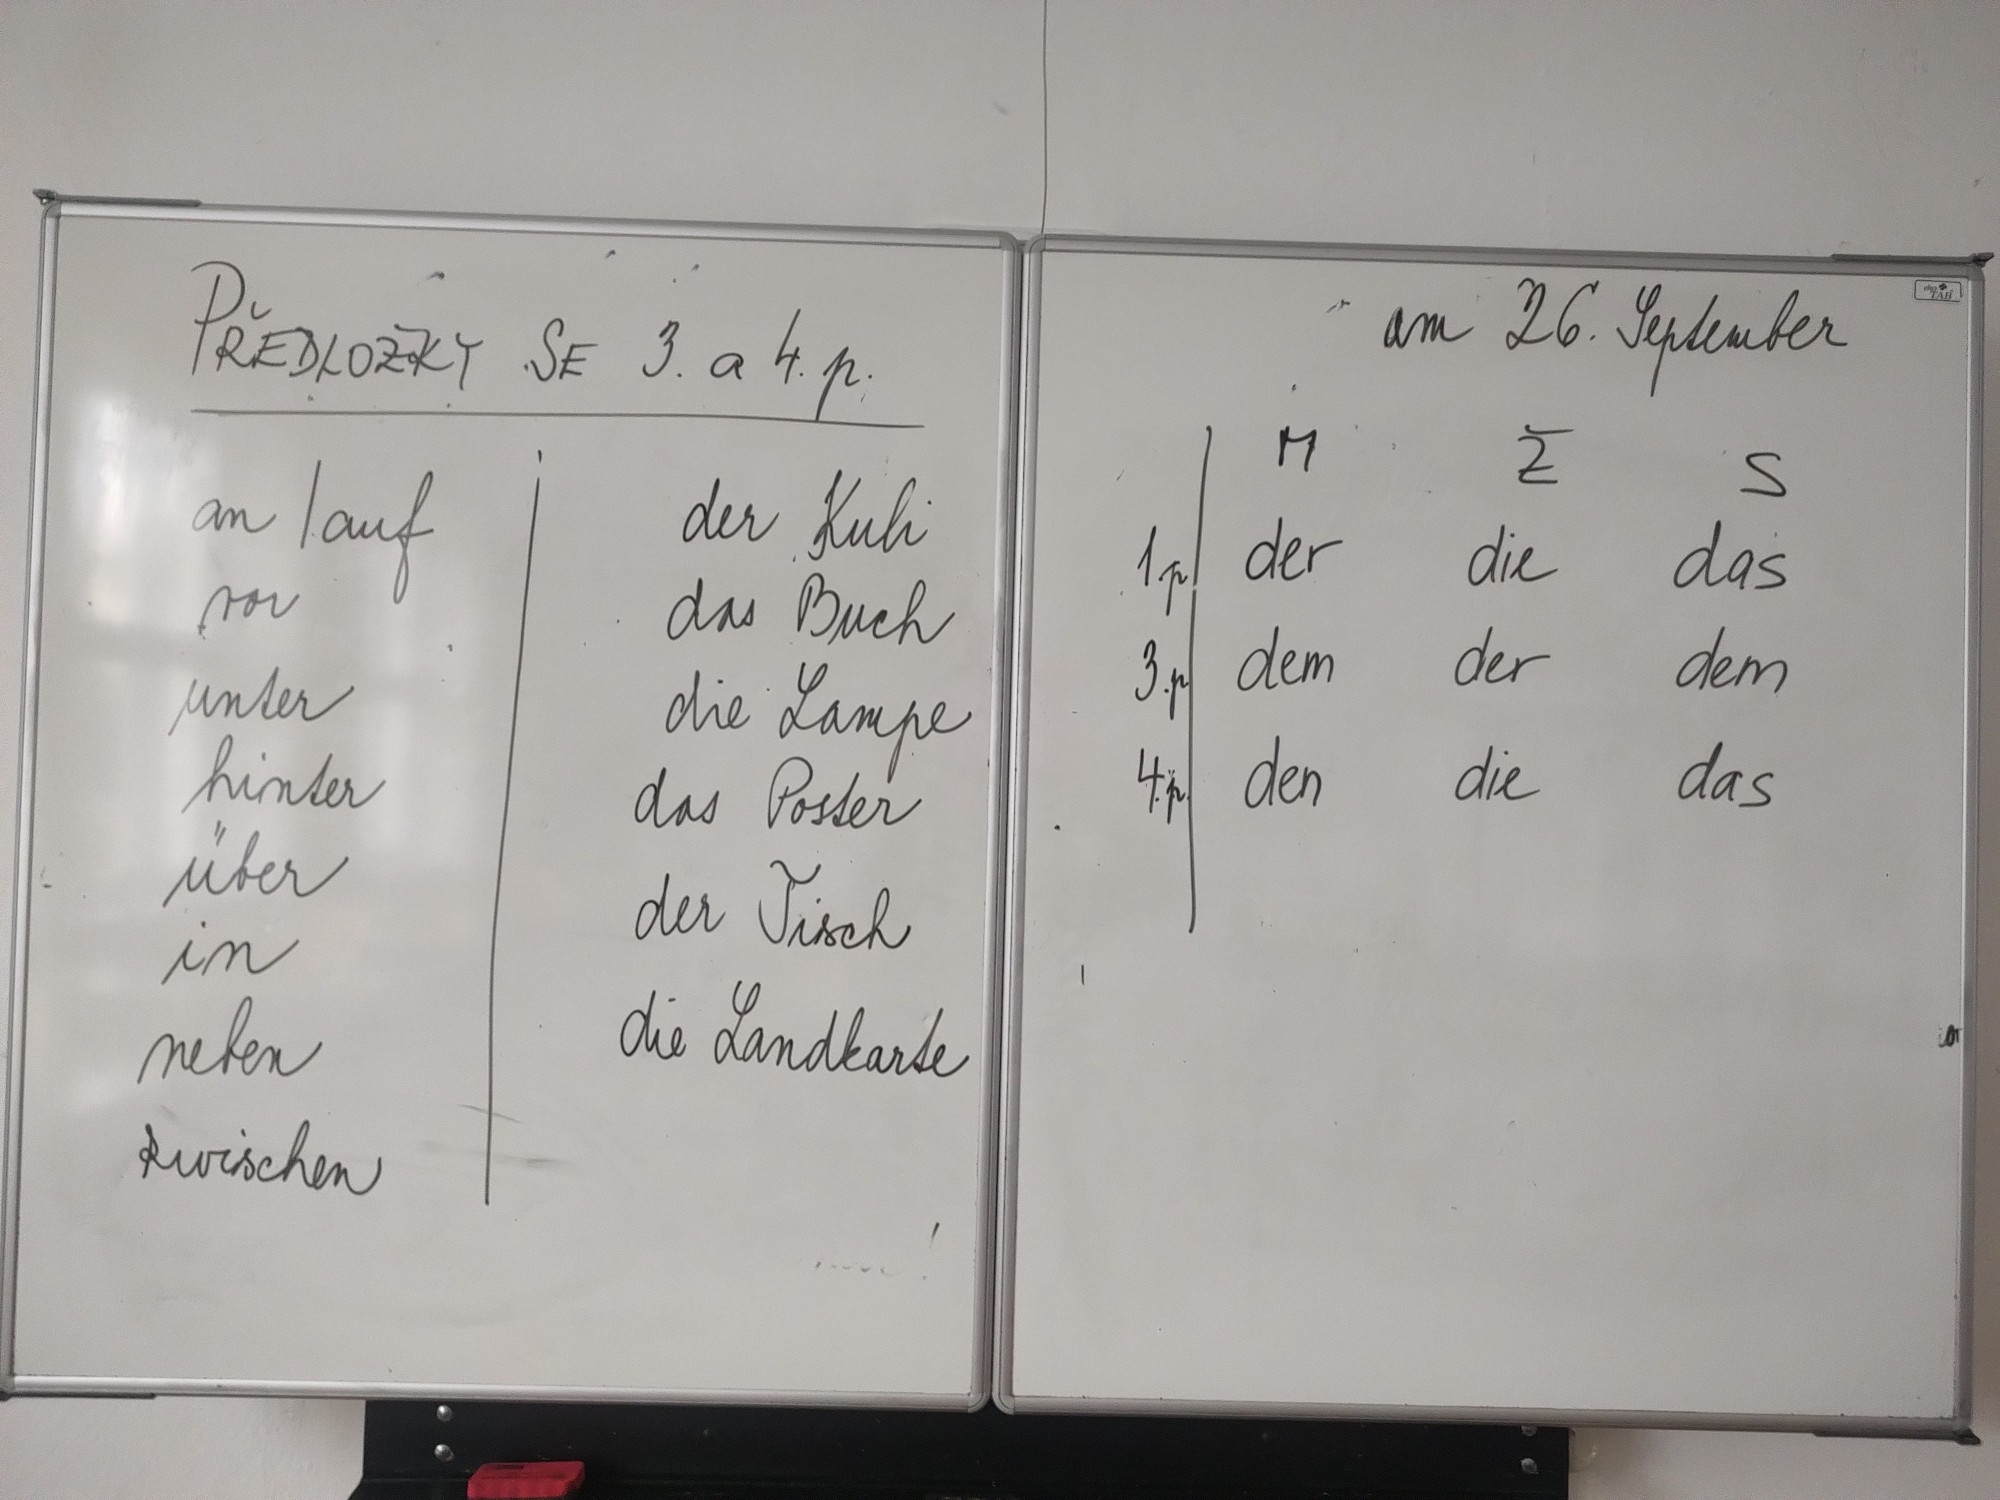 PŘEDLOŽKY SE 3. a 4. p.
an / auf
vor
unter
hinter
über
in
neben
zwischen
der Kuli
das Buch
die Lampe
das Poster
der Tisch
die Landkarte
am 26. September
M Ž S
1.p. der die das
3.p. dem der dem
4.p. den die das